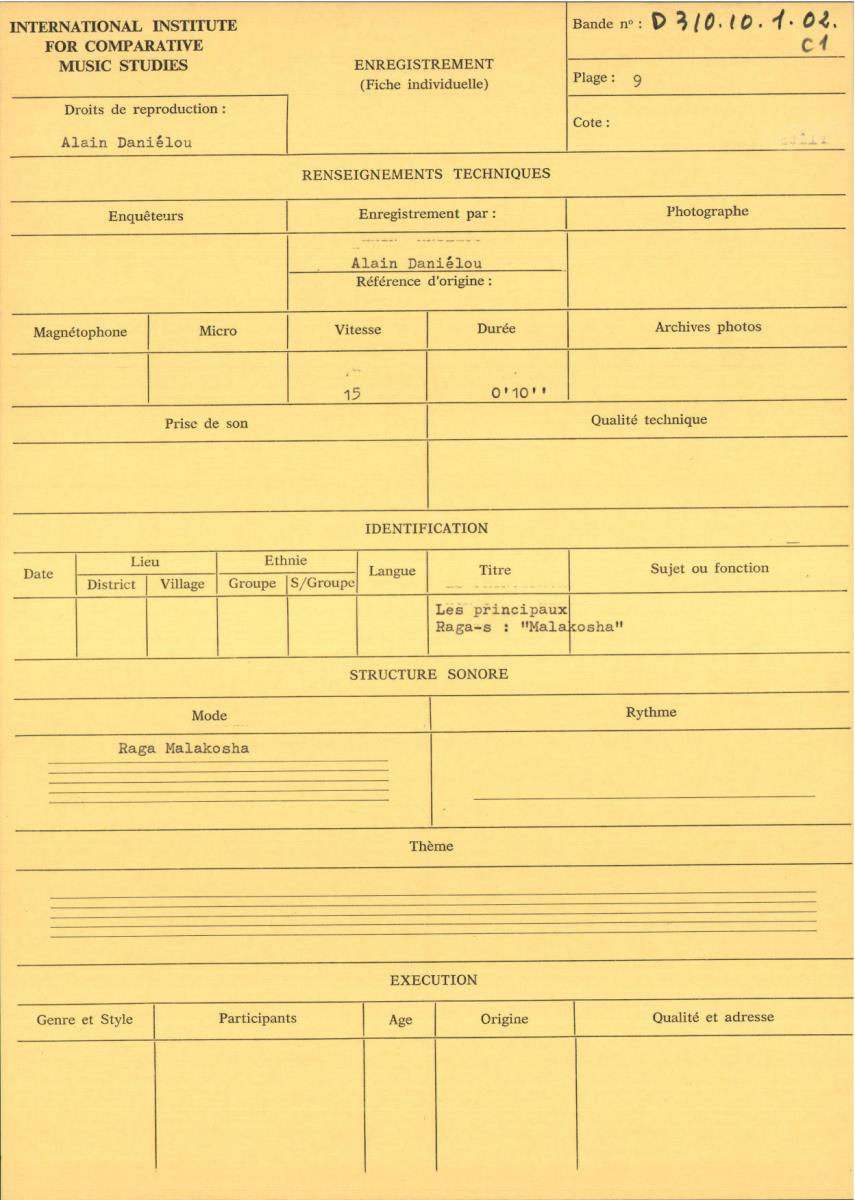 INTERNATIONAL INSTITUTE
FOR COMPARATIVE
MUSIC STUDIES
ENREGISTREMENT
(Fiche individuelle)
Bande nº : D 310.10.1.02.
C1
Plage : 9
Droits de reproduction :
Alain Daniélou
Cote :
RENSEIGNEMENTS TECHNIQUES
Enquêteurs
Enregistrement par :
Photographe
Alain Daniélou
Référence d'origine :
Magnétophone
Micro
Vitesse
Durée
Archives photos
15
0'10''
Prise de son
Qualité technique
IDENTIFICATION
Date
Lieu
District
Village
Ethnie
Groupe
S/Groupe
Langue
Titre
Sujet ou fonction
Les principaux
Raga-s : "Malakosha"
STRUCTURE SONORE
Mode
Rythme
Raga Malakosha
Thème
EXECUTION
Genre et Style
Participants
Age
Origine
Qualité et adresse